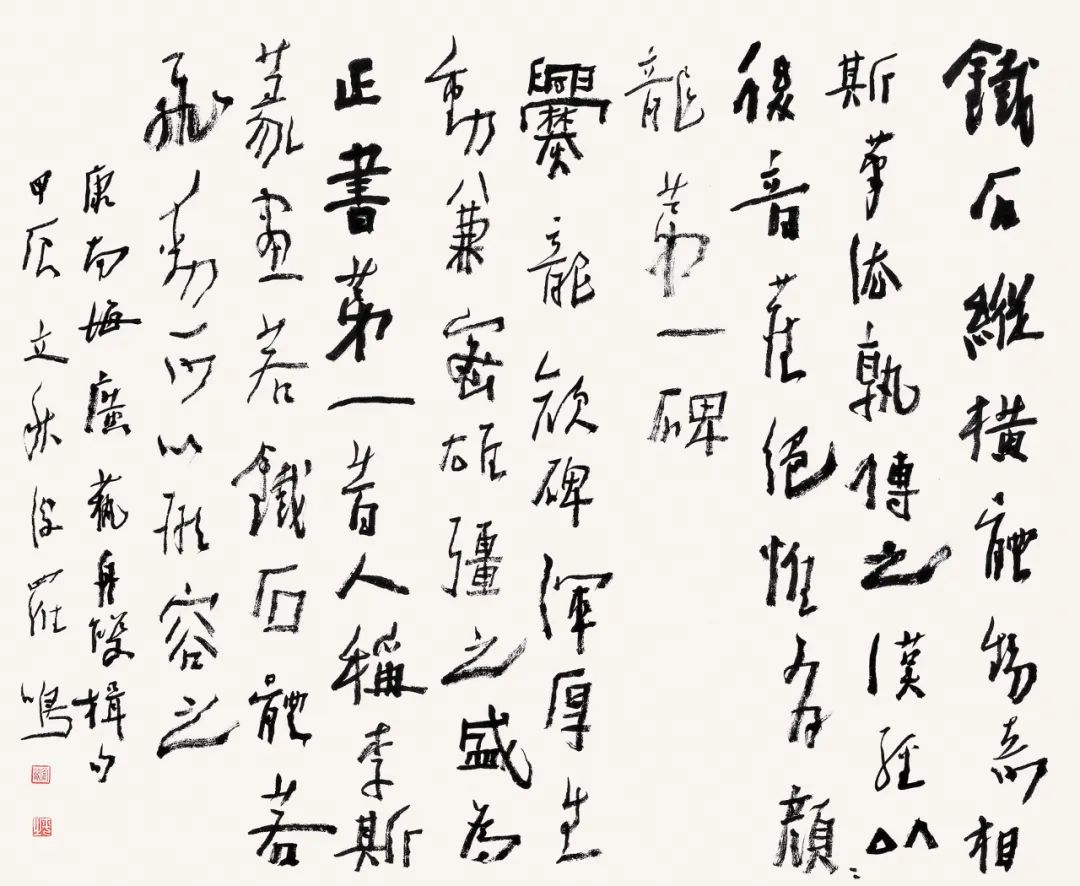 鐵石縱橫體勢奇相
斯筆法孰傳之漢經以
後音塵絕惟有顏
龍第一碑
爨龍顏碑渾厚生
動兼密雄彊之盛為
正書第一昔人稱李斯
篆畫若鐵石體若
飛動可以形容之
康南海廣藝舟雙楫句
甲辰立秋後羅鳴